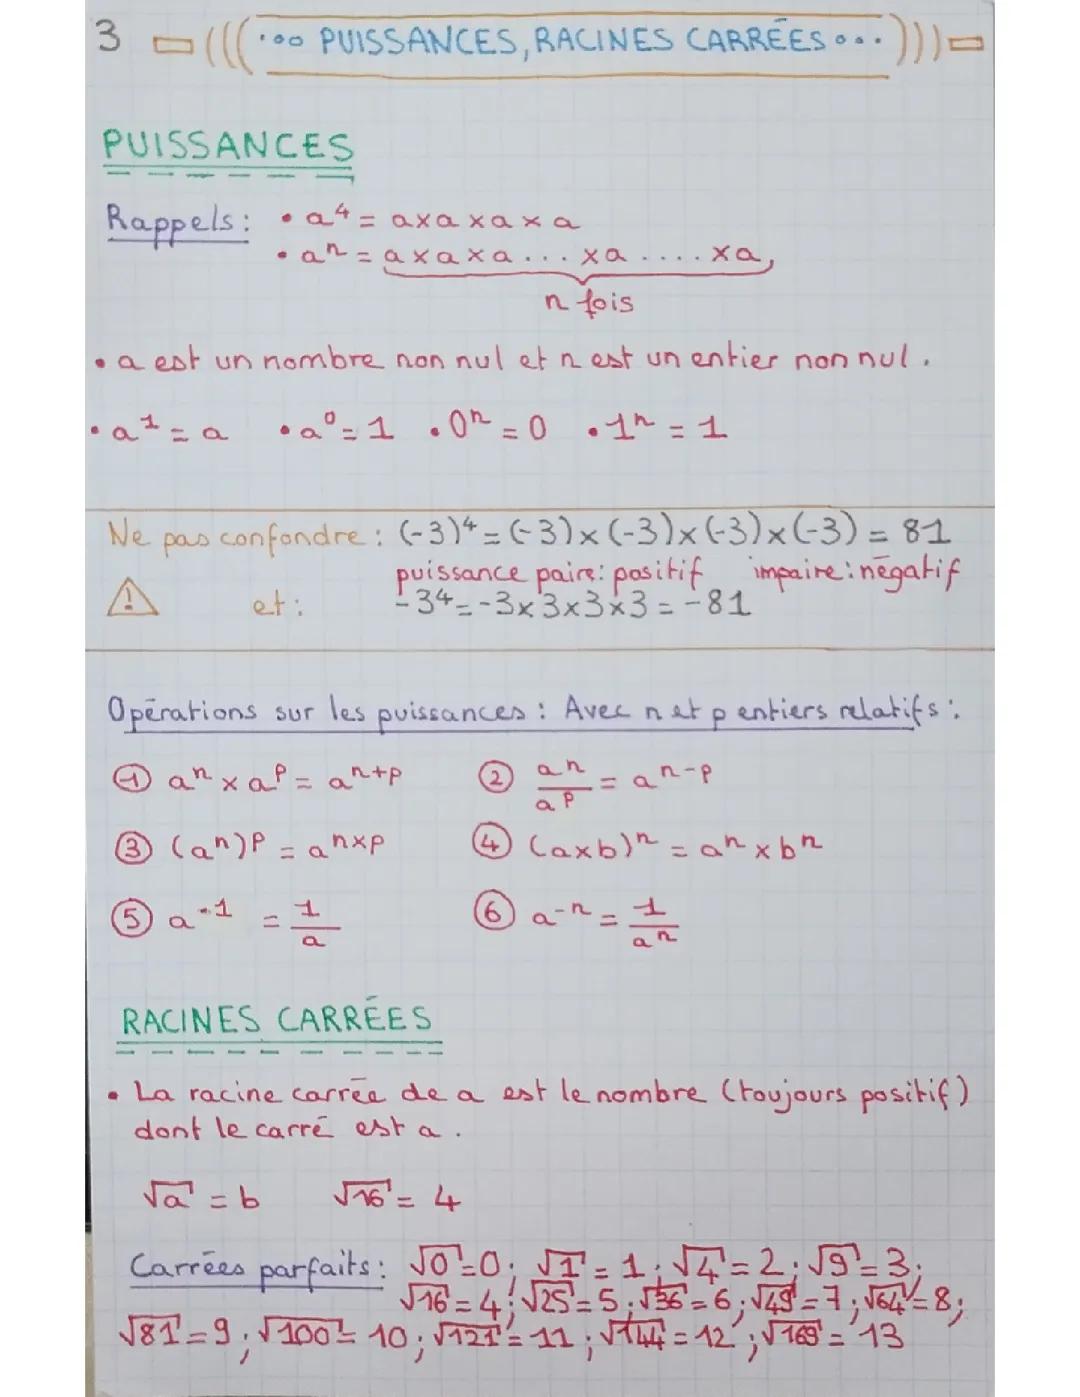 3 ∙∘∘ PUISSANCES, RACINES CARRÉES ∘∘∙
PUISSANCES
Rappels : • a⁴ = a×a×a×a
• aⁿ = a×a×a...×a....×a,
n fois
• a est un nombre non nul et n est un entier non nul.
• a¹ = a • a⁰ = 1 • 0ⁿ = 0 • 1ⁿ = 1
Ne pas confondre : (-3)⁴ = (-3)×(-3)×(-3)×(-3) = 81
puissance paire : positif impaire : négatif
! et : -3⁴ = -3×3×3×3 = -81
Opérations sur les puissances : Avec n et p entiers relatifs :
① aⁿ × aᵖ = aⁿ⁺ᵖ ② aⁿ/aᵖ = aⁿ⁻ᵖ
③ (aⁿ)ᵖ = aⁿˣᵖ ④ (a×b)ⁿ = aⁿ × bⁿ
⑤ a⁻¹ = 1/a ⑥ a⁻ⁿ = 1/aⁿ
RACINES CARRÉES
• La racine carrée de a est le nombre (toujours positif)
dont le carré est a.
√a = b √16 = 4
Carrées parfaits : √0 = 0 ; √1 = 1 ; √4 = 2 ; √9 = 3 ;
√16 = 4 ; √25 = 5 ; √36 = 6 ; √49 = 7 ; √64 = 8 ;
√81 = 9 ; √100 = 10 ; √121 = 11 ; √144 = 12 ; √169 = 13